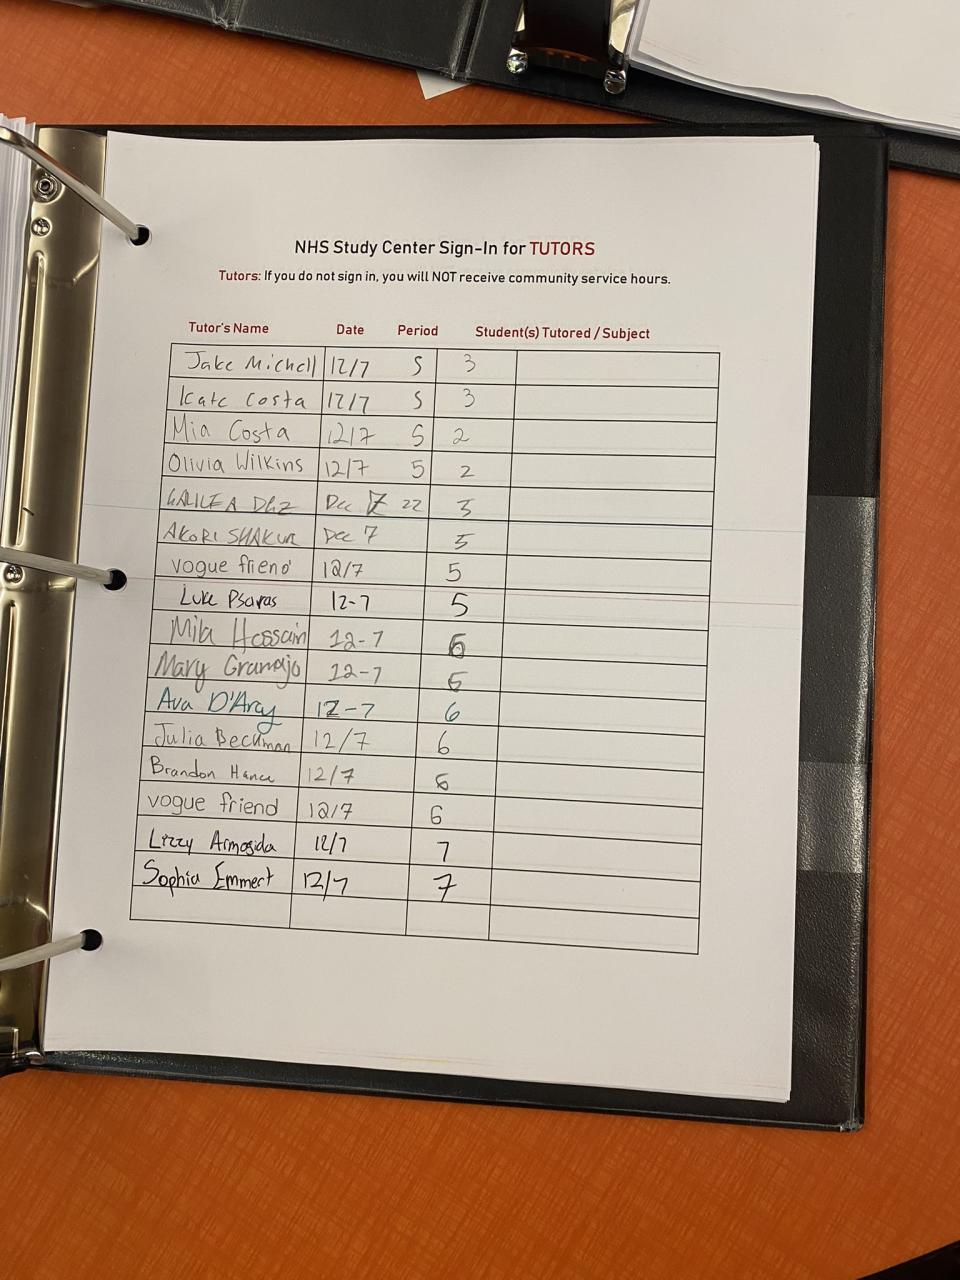 NHS Study Center Sign-In for TUTORS
Tutors: If you do not sign in, you will NOT receive community service hours.
Tutor's Name Date Period Student(s) Tutored / Subject
Jake Michell 12/7 5 3
Kate Costa 12/7 5 3
Mia Costa 12/7 5 2
Olivia Wilkins 12/7 5 2
GALILEA Dec 7 22 3
AKORI SHAKUR Dec 7 5
vogue friend 12/7 5
Luke Psaras 12-7 5
Mila Hossain 12-7 6
Mary Gramajo 12-7 5
Ava D'Arcy 12-7 6
Julia Beckman 12/7 6
Brandon Hance 12/7 6
vogue friend 12/7 6
Lizzy Armogida 12/7 7
Sophia Emmert 12/7 7